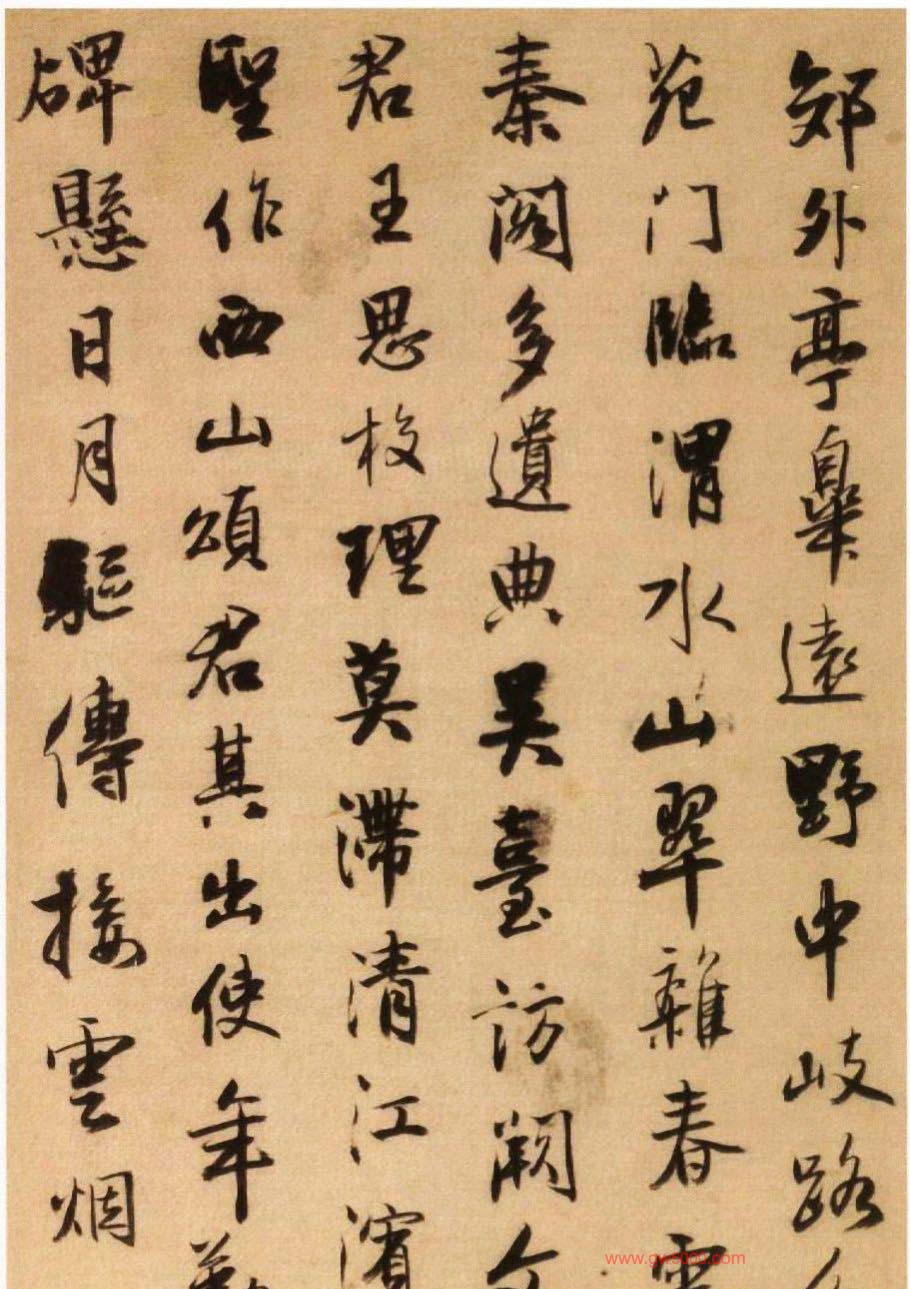 郊外亭皐遠野中岐路
苑门臨渭水山翠雜春雲
秦閣多遺典吴臺訪闕文
君王思校理莫滯清江濱
聖作西山頌君其出使年
碑懸日月驅傳接雲烟
www.gw5000.com